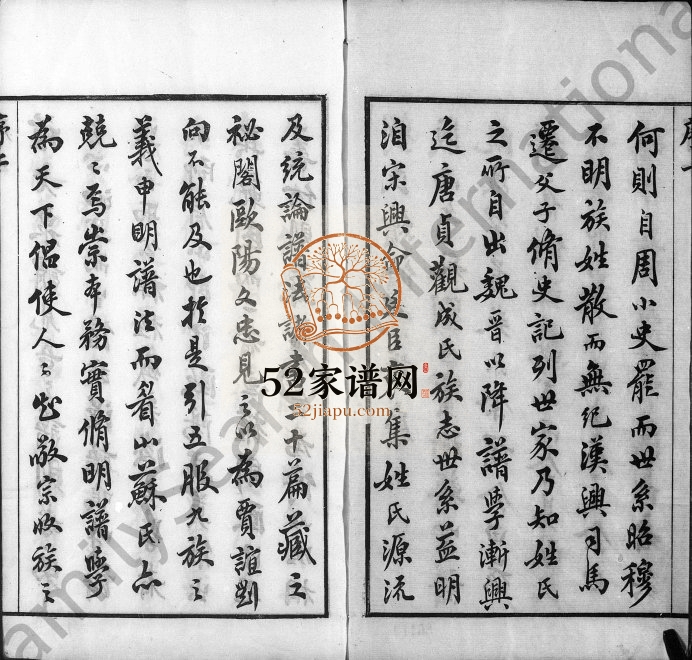 何則自周小史罷而世系昭穆
不明族姓散而無紀漢興司馬
遷父子脩史記列世家乃知姓氏
之所自出魏晉以降譜學漸興
迄唐貞觀成氏族志世系益明
洎宋興命 臣 集姓氏源流
及統論譜法諸 十篇藏之
祕閣歐陽文忠見之以為賈誼劉
向不能及也於是引五服九族之
義申明譜法而眉山蘇氏亦
兢〻焉崇本務實脩明譜學
為天下倡使人〻知敬宗收族之
序一
序二
52家谱网
52jiapu.com
FamilySearch International